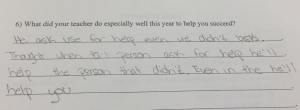 6) What did your teacher do especially well this year to help you succeed?
He ask use for help even we didn't
Thought when 1 person ask for help he'll
help the person that didn't. Even in the he'll
help you